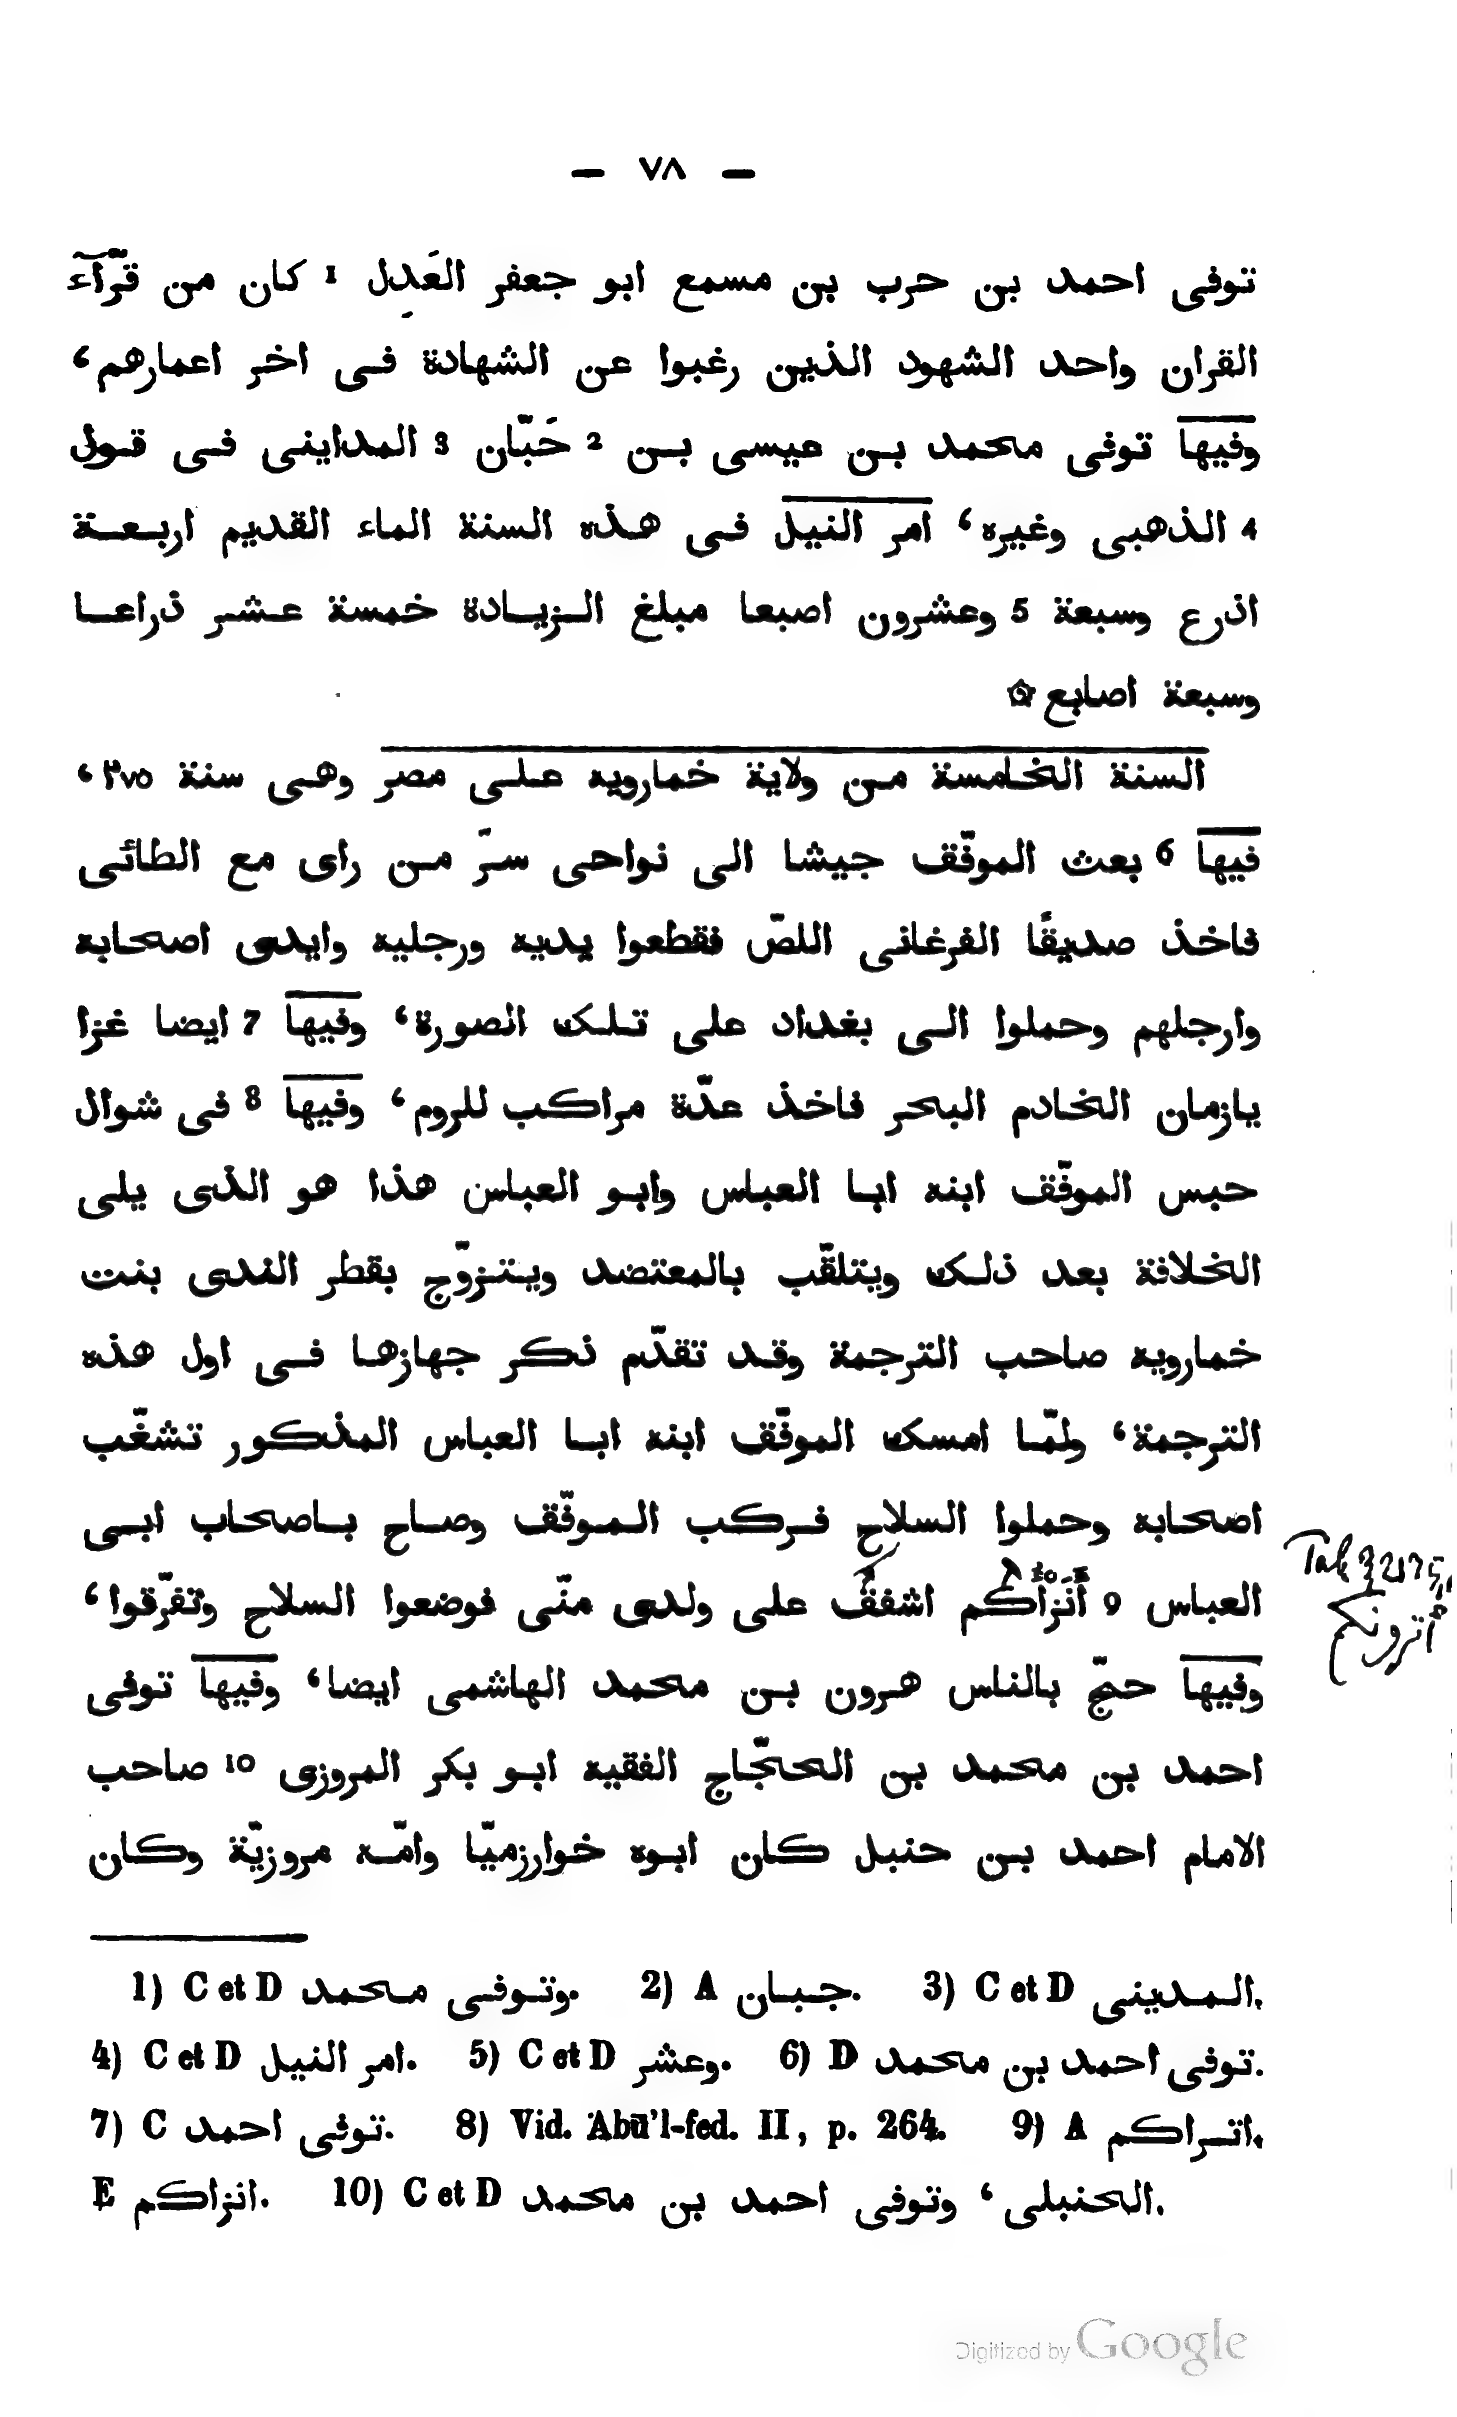 — ٧٨ —
توفى احمد بن حرب بن مسمع ابو جعفر العَدِل 1 كان من قرّآء
القران واحد الشهود الذين رغبوا عن الشهادة فى اخر اعمارهم،
وفيها توفى محمد بن عيسى بن 2 حَبّان 3 المداينى فى قول
4 الذهبى وغيره، امر النيل فى هذه السنة الماء القديم اربعة
اذرع وسبعة 5 وعشرون اصبعا مبلغ الزيادة خمسة عشر ذراعا
وسبعة اصابع ۞
السنة الخامسة من ولاية خمارويه على مصر وهى سنة ٢٧٥،
فيها 6 بعث الموفّق جيشا الى نواحى سرّ من راى مع الطائى
فاخذ صديقًا الفرغانى اللصّ فقطعوا يديه ورجليه وايدى اصحابه
وارجلهم وحملوا الى بغداد على تلك الصورة، وفيها 7 ايضا غزا
يازمان الخادم البحر فاخذ عدّة مراكب للروم، وفيها 8 فى شوال
حبس الموفّق ابنه ابا العباس وابو العباس هذا هو الذى يلى
الخلافة بعد ذلك ويتلقّب بالمعتضد ويتزوّج بقطر الندى بنت
خمارويه صاحب الترجمة وقد تقدّم ذكر جهازها فى اول هذه
الترجمة، ولمّا امسك الموفّق ابنه ابا العباس المذكور تشغّب
اصحابه وحملوا السلاح فركب الموفّق وصاح باصحاب ابى
العباس 9 أَنَزاكم اشفق على ولدى منّى فوضعوا السلاح وتفرّقوا،
أترونكم
وفيها حجّ بالناس هرون بن محمد الهاشمى ايضا، وفيها توفى
احمد بن محمد بن الحجّاج الفقيه ابو بكر المروزى 10 صاحب
الامام احمد بن حنبل كان ابوه خوارزميّا وامّه مروزيّة وكان
1) C et D وتوفى محمد. 2) A جبان. 3) C et D المدينى.
4) C et D امر النيل. 5) C et D وعشر. 6) D توفى احمد بن محمد.
7) C توفى احمد. 8) Vid. Abū'l-fed. II, p. 264. 9) A اتراكم.
E انزاكم. 10) C et D الحنبلى، وتوفى احمد بن محمد.
Digitized by Google